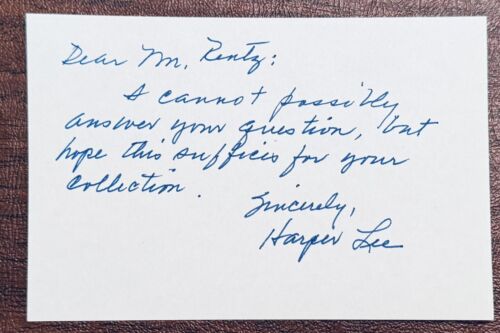 Dear Mr. Rentz:
I cannot possibly
answer your question, but
hope this suffices for your
collection.
Sincerely,
Harper Lee